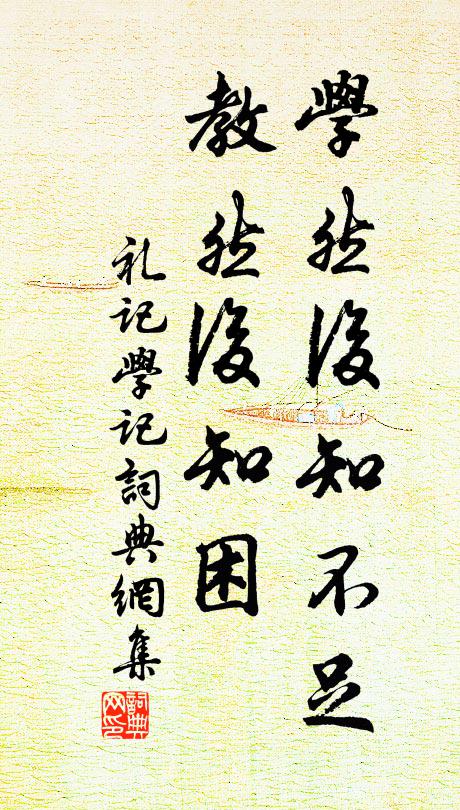 學然後知不足
教然後知困
礼记學记詞典網集
詞典网印